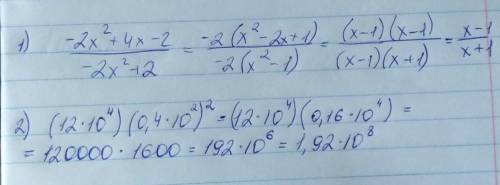 1) (-2x²+4x-2)/(-2x²+2) = (-2(x²-2x+1))/(-2(x²-1)) = ((x-1)(x-1))/((x-1)(x+1)) = (x-1)/(x+1)
2) (12·10⁴)(0,4·10²)² = (12·10⁴)(0,16·10⁴) =
= 120000·1600 = 192·10⁶ = 1,92·10⁸